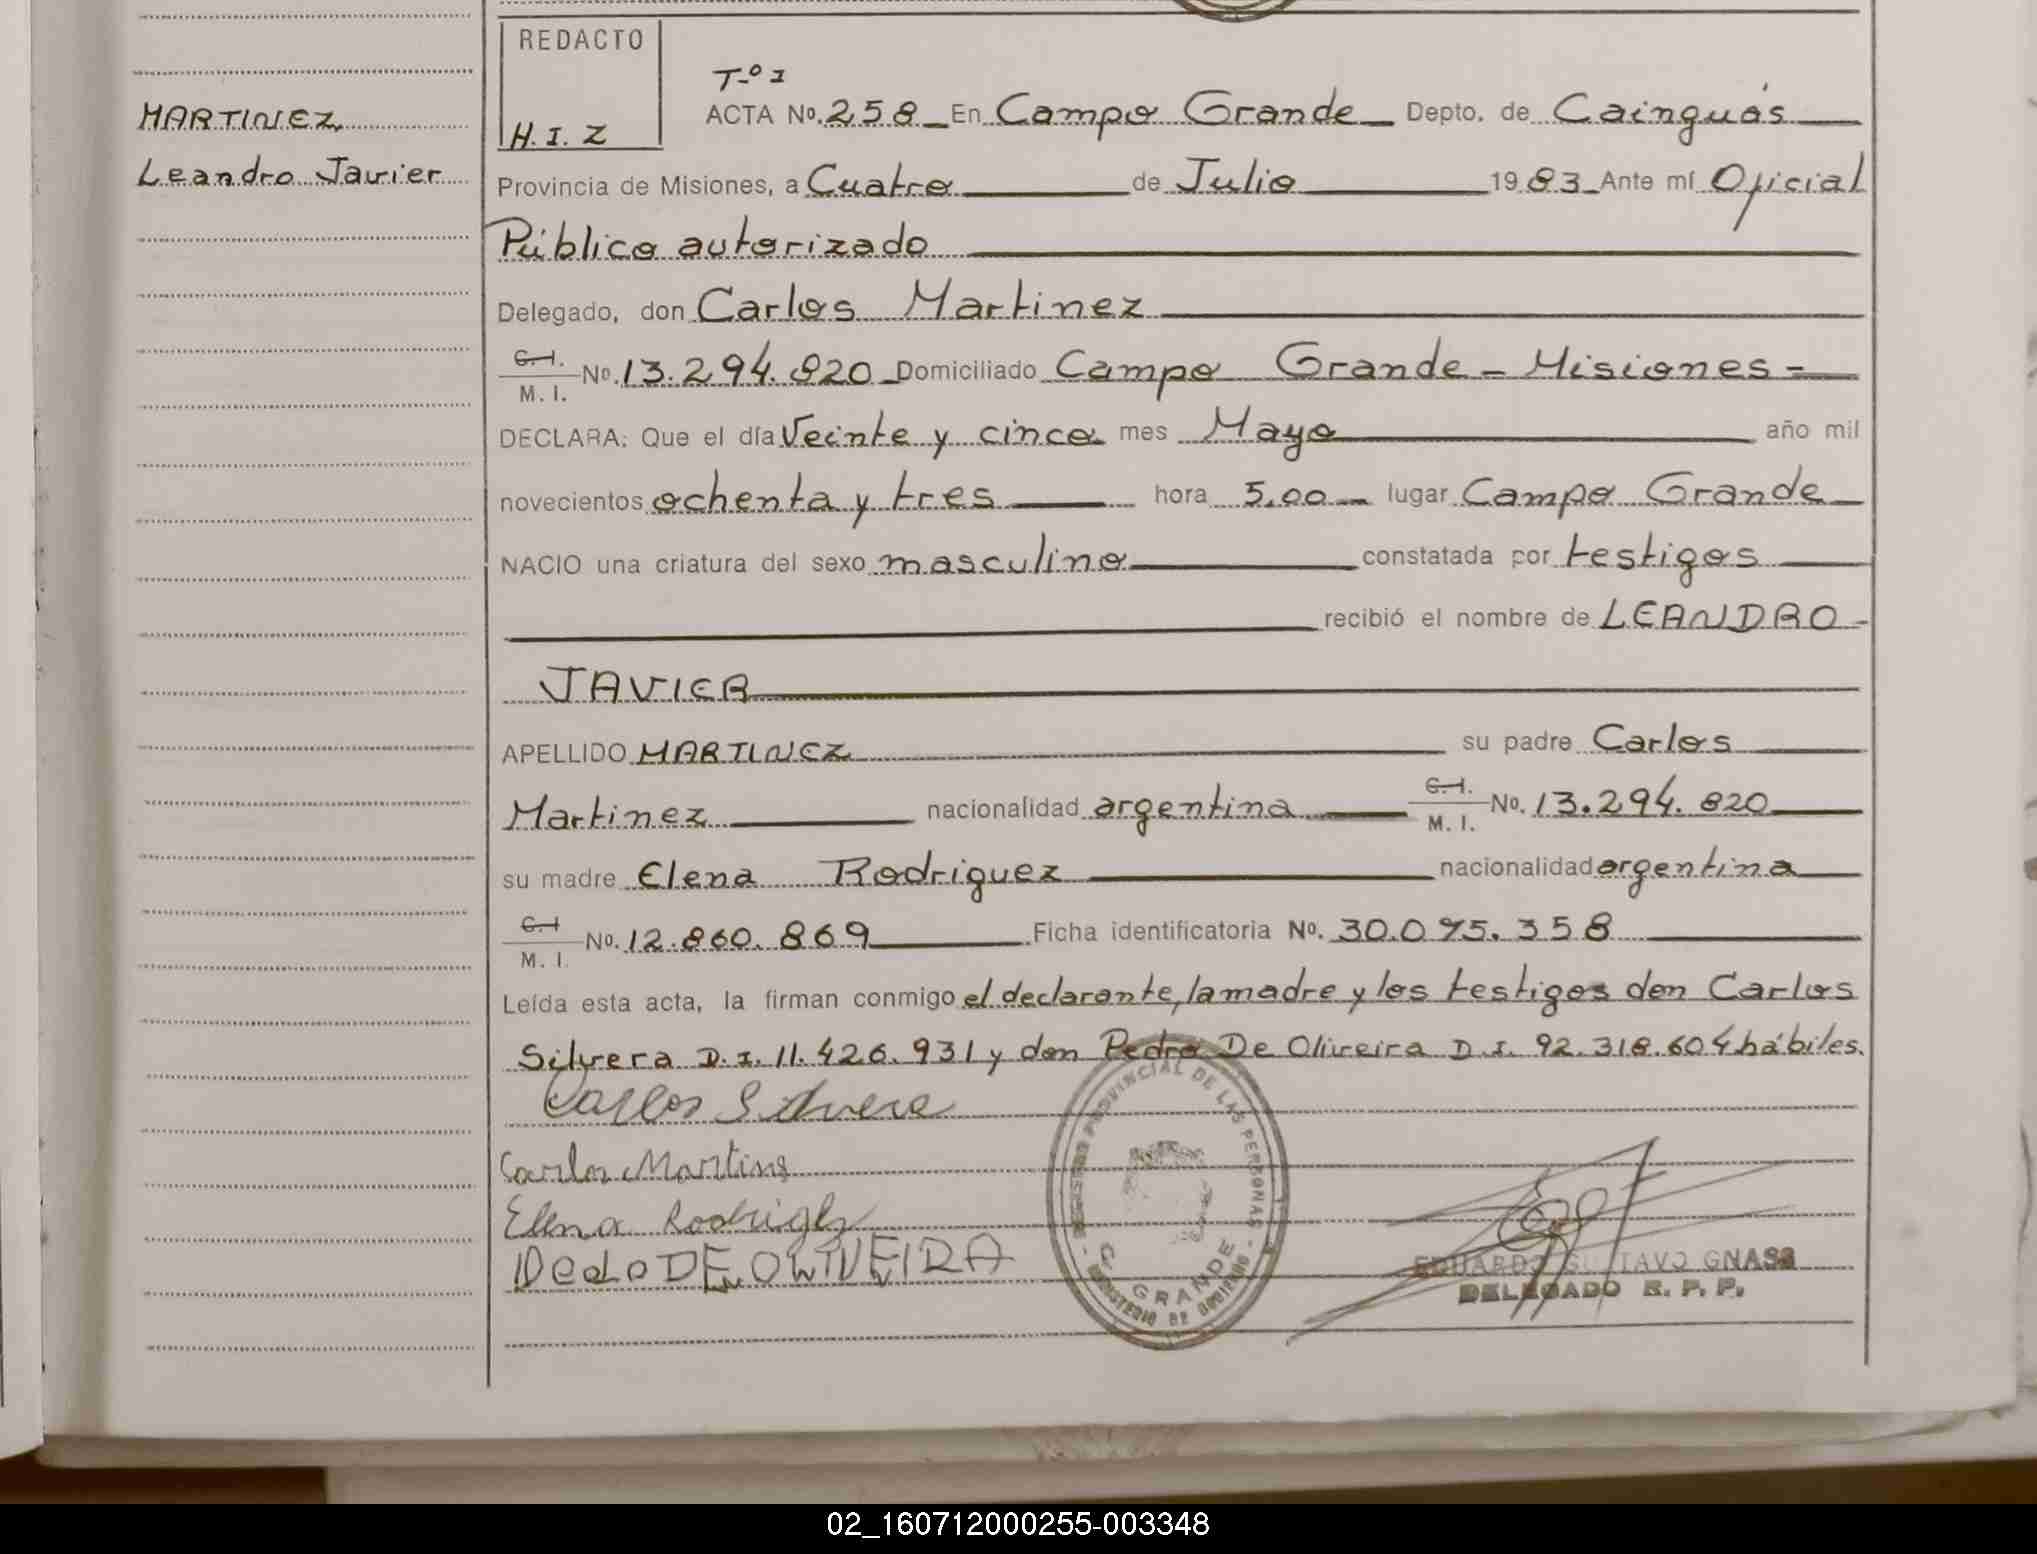 REDACTO
H. I. Z
MARTINEZ
Leandro Javier
T-º 1
ACTA Nº. 258 En Campo Grande Depto. de Cainguás
Provincia de Misiones, a Cuatro de Julio 1983 Ante mí Oficial
Público autorizado
Delegado, don Carlos Martinez
C. I. / M. I. Nº. 13.294.820 Domiciliado Campo Grande - Misiones -
DECLARA: Que el día Veinte y cinco mes Mayo año mil
novecientos ochenta y tres hora 5,00 lugar Campo Grande
NACIO una criatura del sexo masculino constatada por testigos
recibió el nombre de LEANDRO -
JAVIER
APELLIDO MARTINEZ su padre Carlos
Martinez nacionalidad argentina C. I. / M. I. Nº. 13.294.820
su madre Elena Rodriguez nacionalidad argentina
C. I / M. I. Nº. 12.860.869 Ficha identificatoria Nº. 30.075.358
Leída esta acta, la firman conmigo el declarante, la madre y los testigos don Carlos
Silvera D.I. 11.426.931 y don Pedro De Oliveira D.I. 92.318.604 hábiles.
Carlos Silvera
Carlos Martines
Elena Rodrigez
DE OLIVEIRA
REGISTRO PROVINCIAL DE LAS PERSONAS
C. GRANDE
MINISTERIO DE GOBIERNO
EDUARDO GUSTAVO GNASS
DELEGADO R. P. P.
02_160712000255-003348